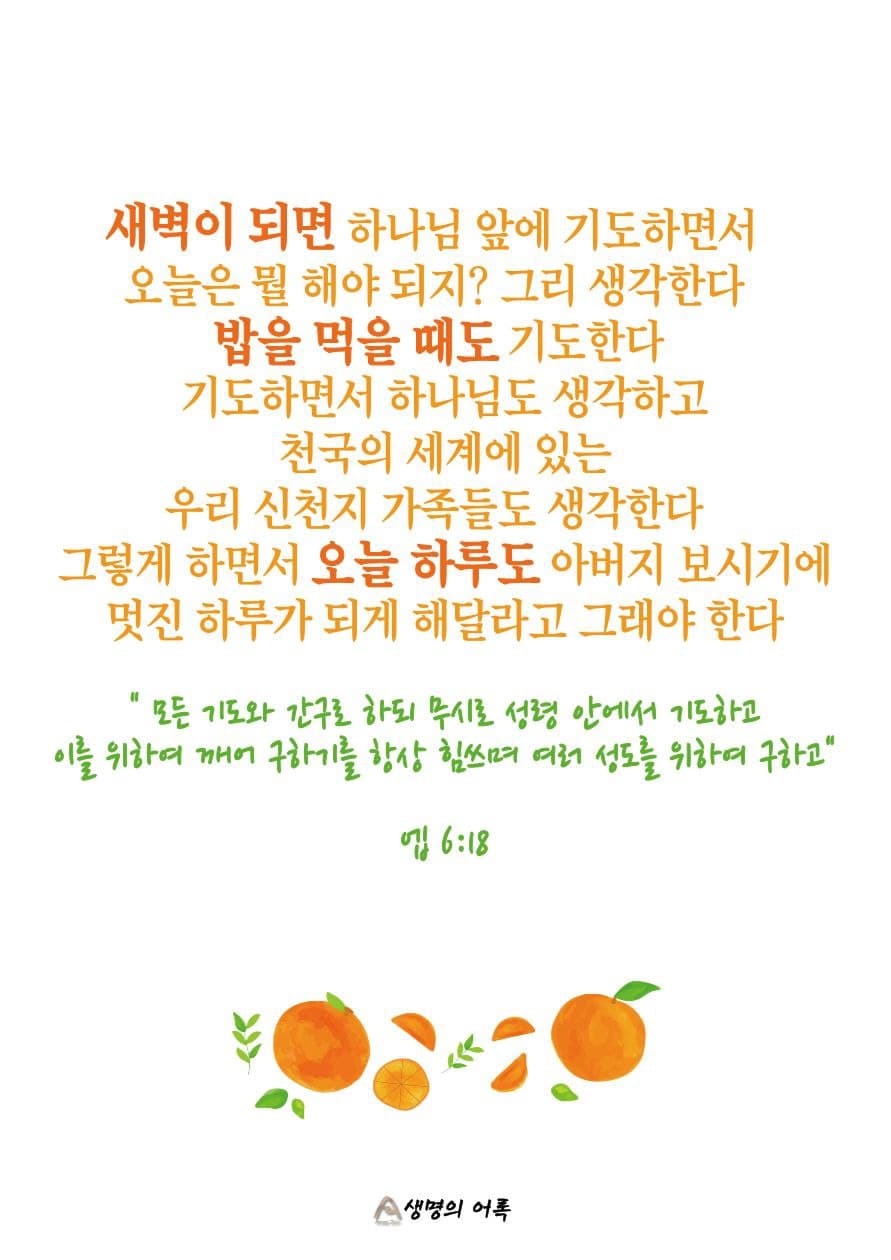 새벽이 되면 하나님 앞에 기도하면서
오늘은 뭘 해야 되지? 그리 생각한다
밥을 먹을 때도 기도한다
기도하면서 하나님도 생각하고
천국의 세계에 있는
우리 신천지 가족들도 생각한다
그렇게 하면서 오늘 하루도 아버지 보시기에
멋진 하루가 되게 해달라고 그래야 한다
" 모든 기도와 간구로 하되 무시로 성령 안에서 기도하고
이를 위하여 깨어 구하기를 항상 힘쓰며 여러 성도를 위하여 구하고"
엡 6:18
생명의 어록